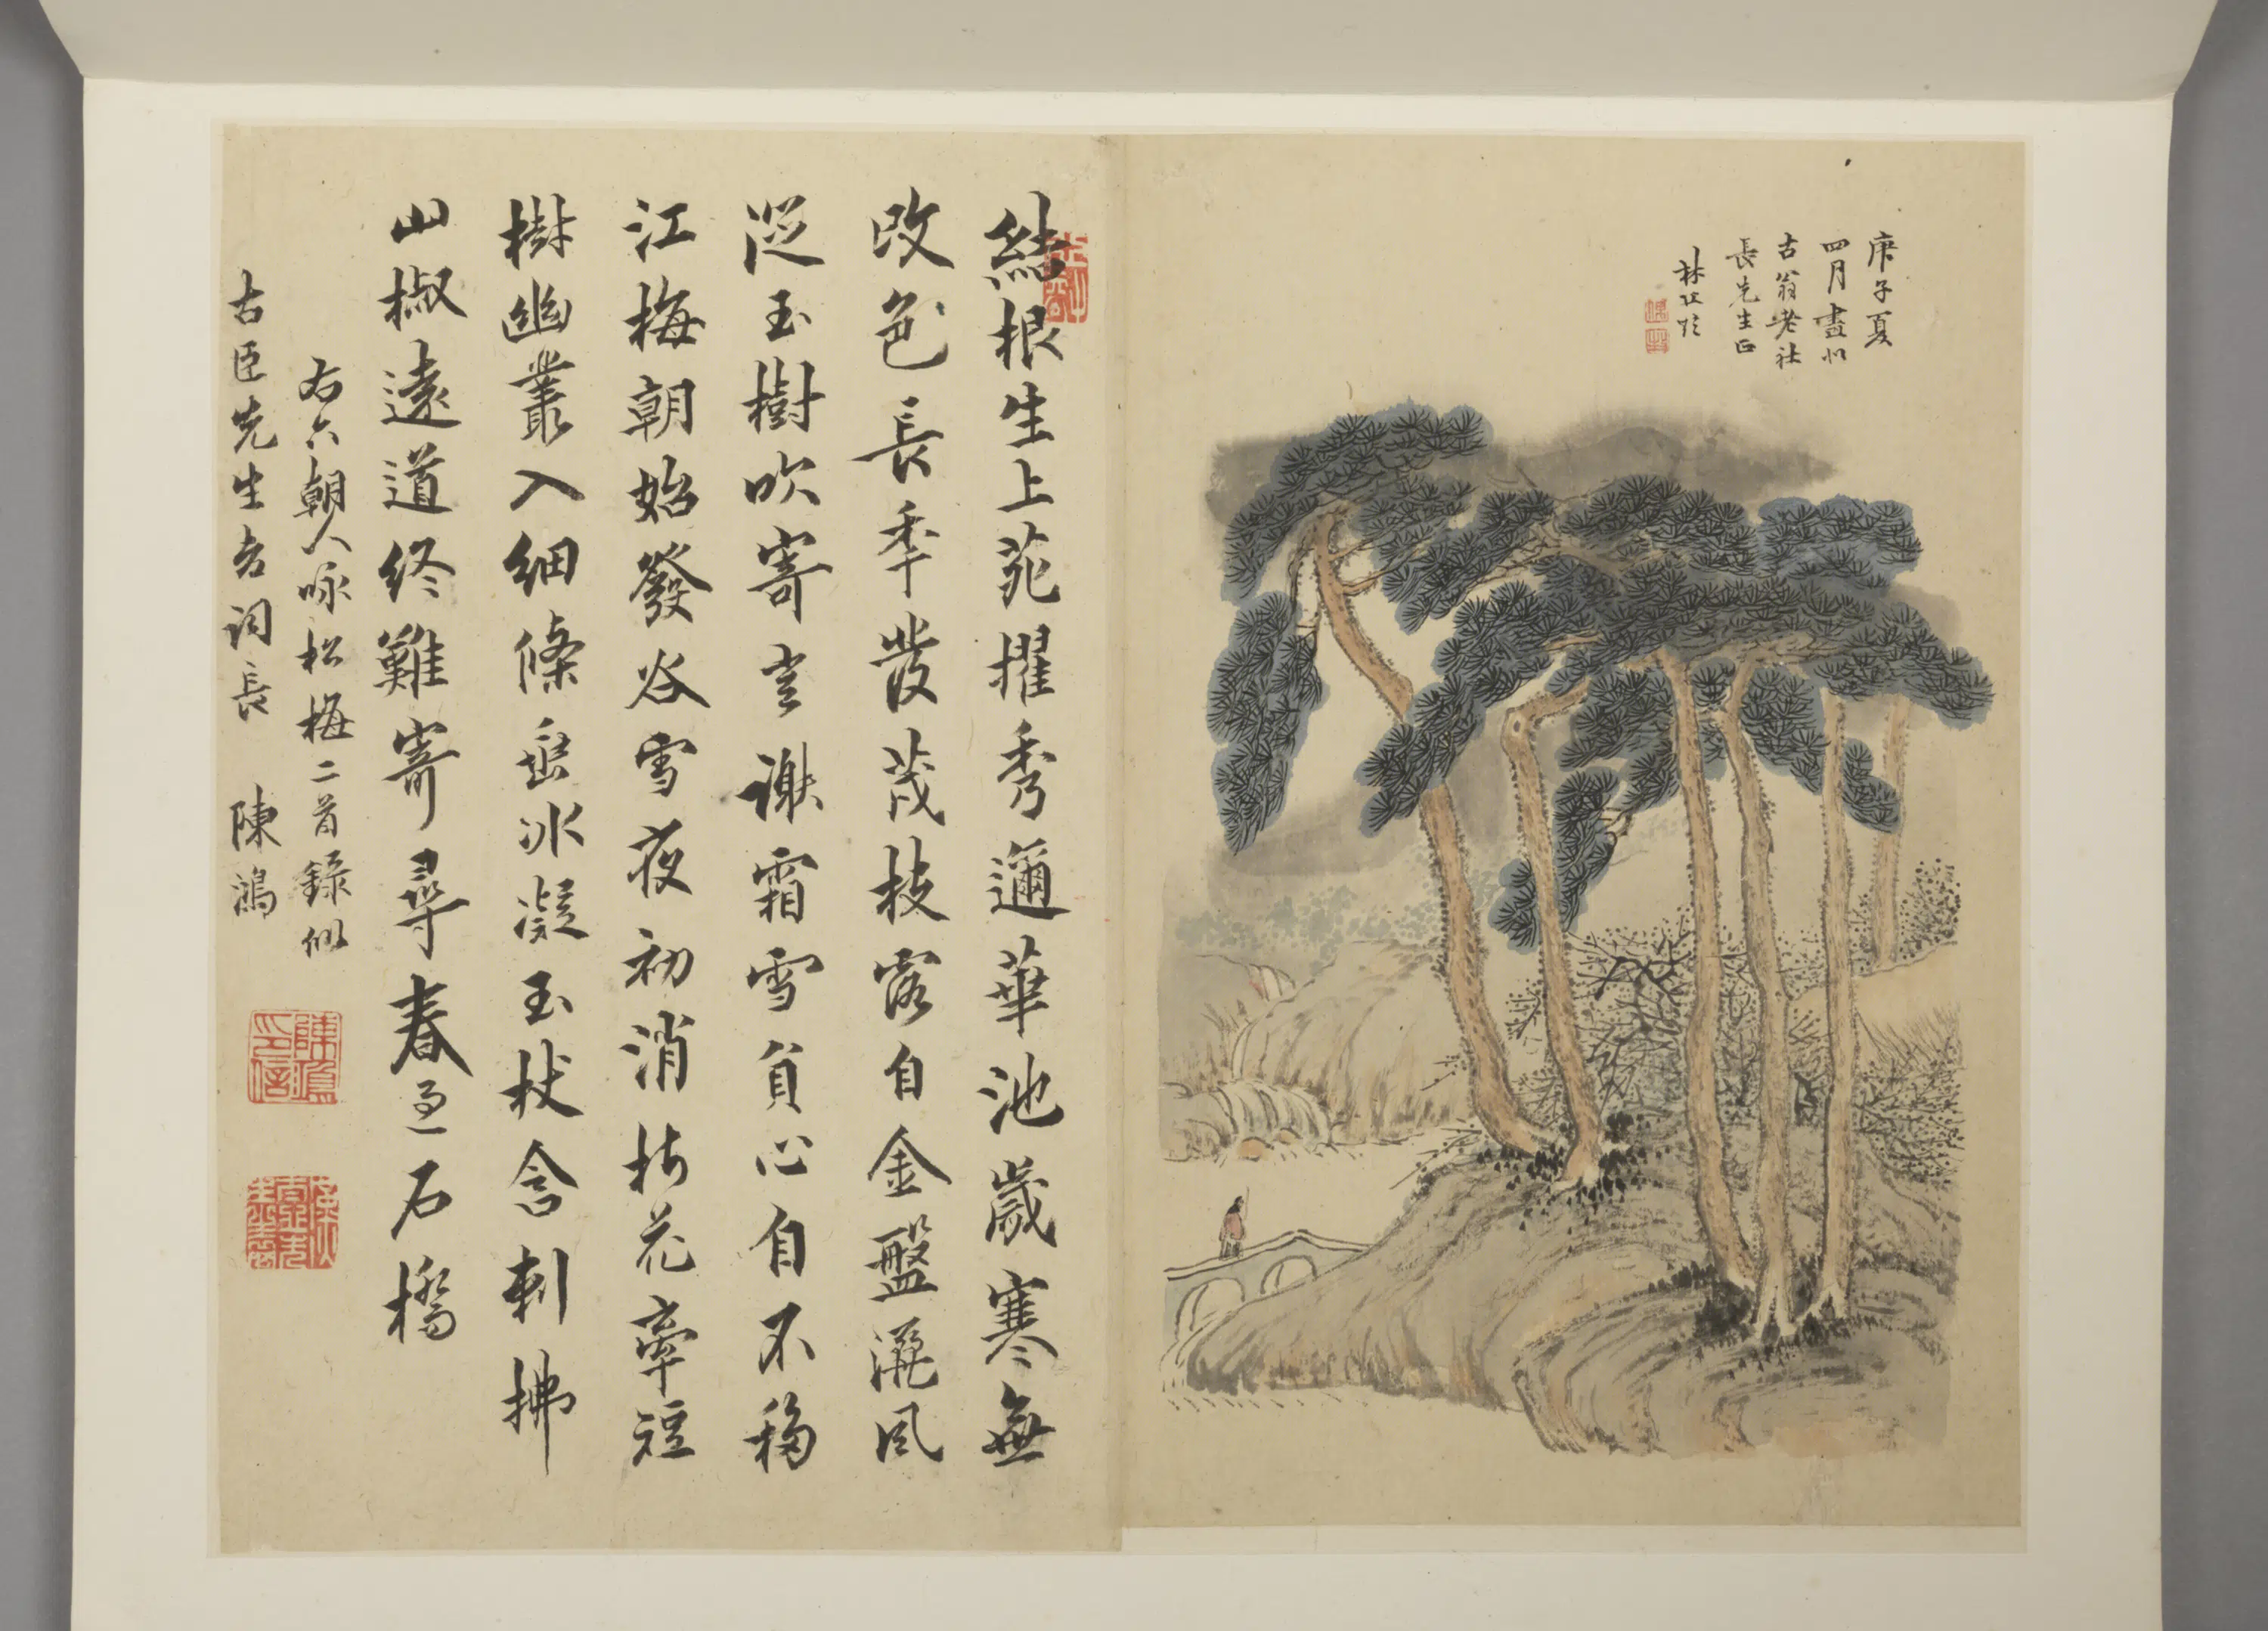 庚子夏
四月畫似
古翁老社
長先生正
林
結根生上苑擢秀邇華池歲寒無
改色長秊發茂枝露自金盤灑風
從玉樹吹寄言謝霜雪貞心自不移
江梅朝始發谷雪夜初消折花牽短
樹幽叢入細條垂冰凝玉杖含刺拂
山椒遠道終難寄尋春過石橋
右六朝人咏松梅二首錄似
古臣先生老詞長 陳鴻
陳鴻印信